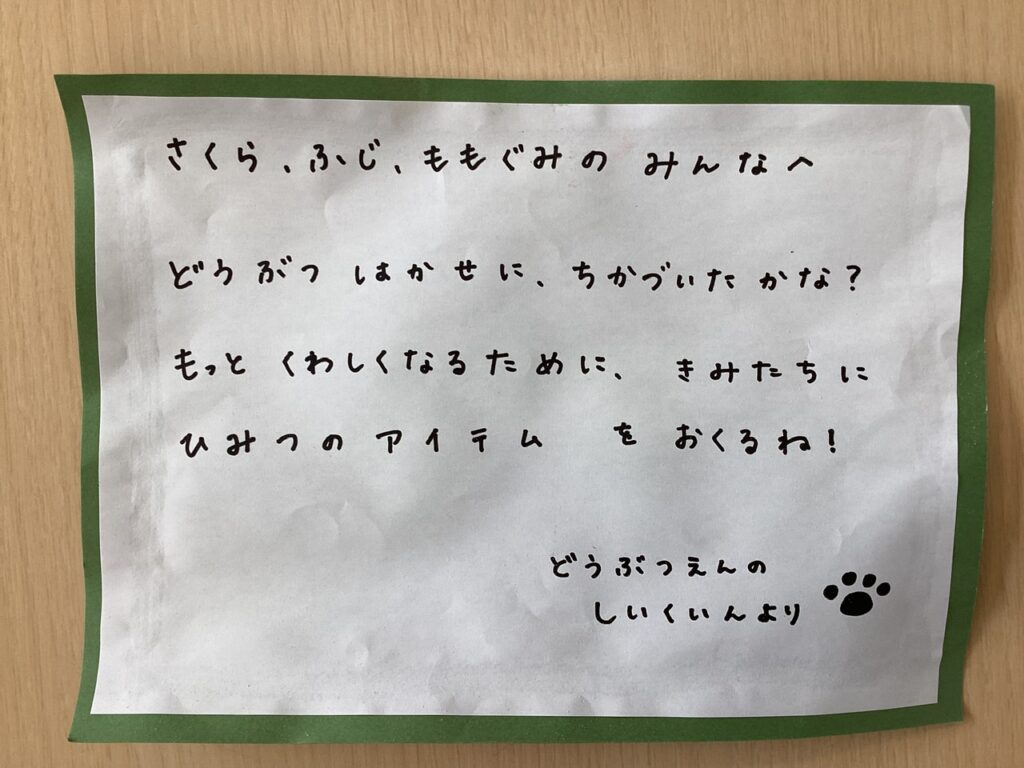 さくら、ふじ、ももぐみの みんなへ
どうぶつ はかせに、ちかづいたかな？
もっと くわしくなるために、 きみたちに
ひみつの アイテム を おくるね！
どうぶつえんの
しいくいんより